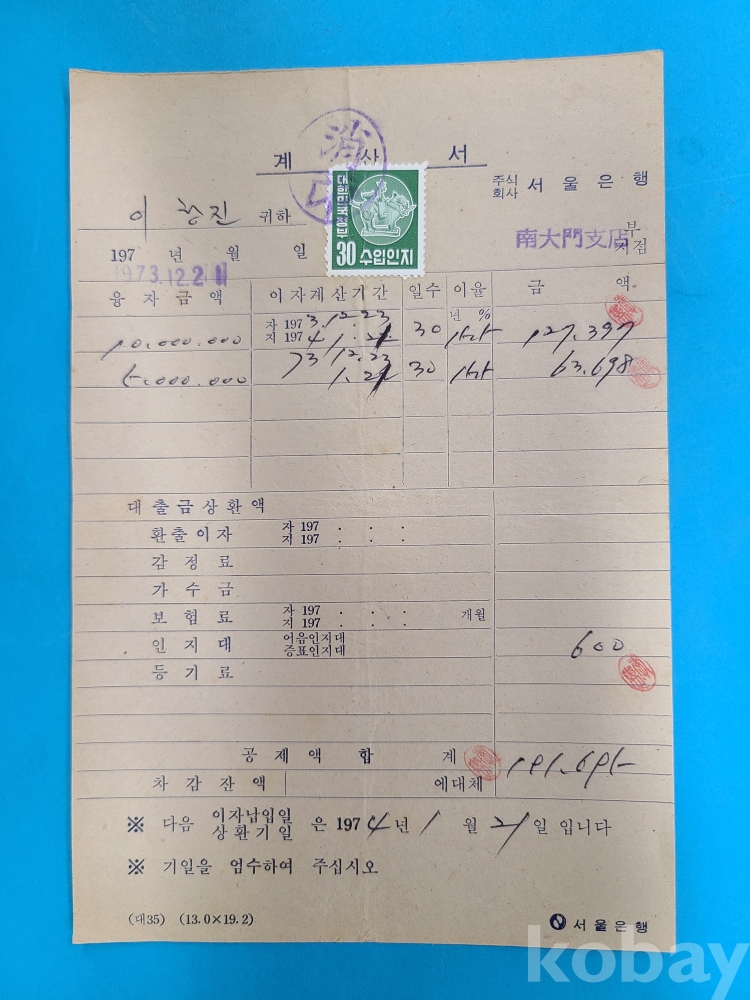 계 산 서
消
대한민국정부
30 수입인지
주식회사 서울은행
이 창진 귀하
南大門支店
부
지점
197 년 월 일
1973.12.2
융자금액 이자계산기간 일수 이율 금 액
년 %
10.000.000 자 197 3.12.23 30 127.397
지 197 4 1.21
5.000.000 73 12.23 30 63.698
1.21
대출금상환액
환출이자 자 197 . . .
지 197 . . .
감정료
가수금
보험료 자 197 . . . 개월
지 197 . . .
인지대 어음인지대 600
증표인지대
등기료
공제액합계 191.695
차감잔액 에대체
※ 다음 이자납입일 은 1974년 1월 21일 입니다
상환기일
※ 기일을 엄수하여 주십시오
(대35) (13.0×19.2)
서울은행
kobay